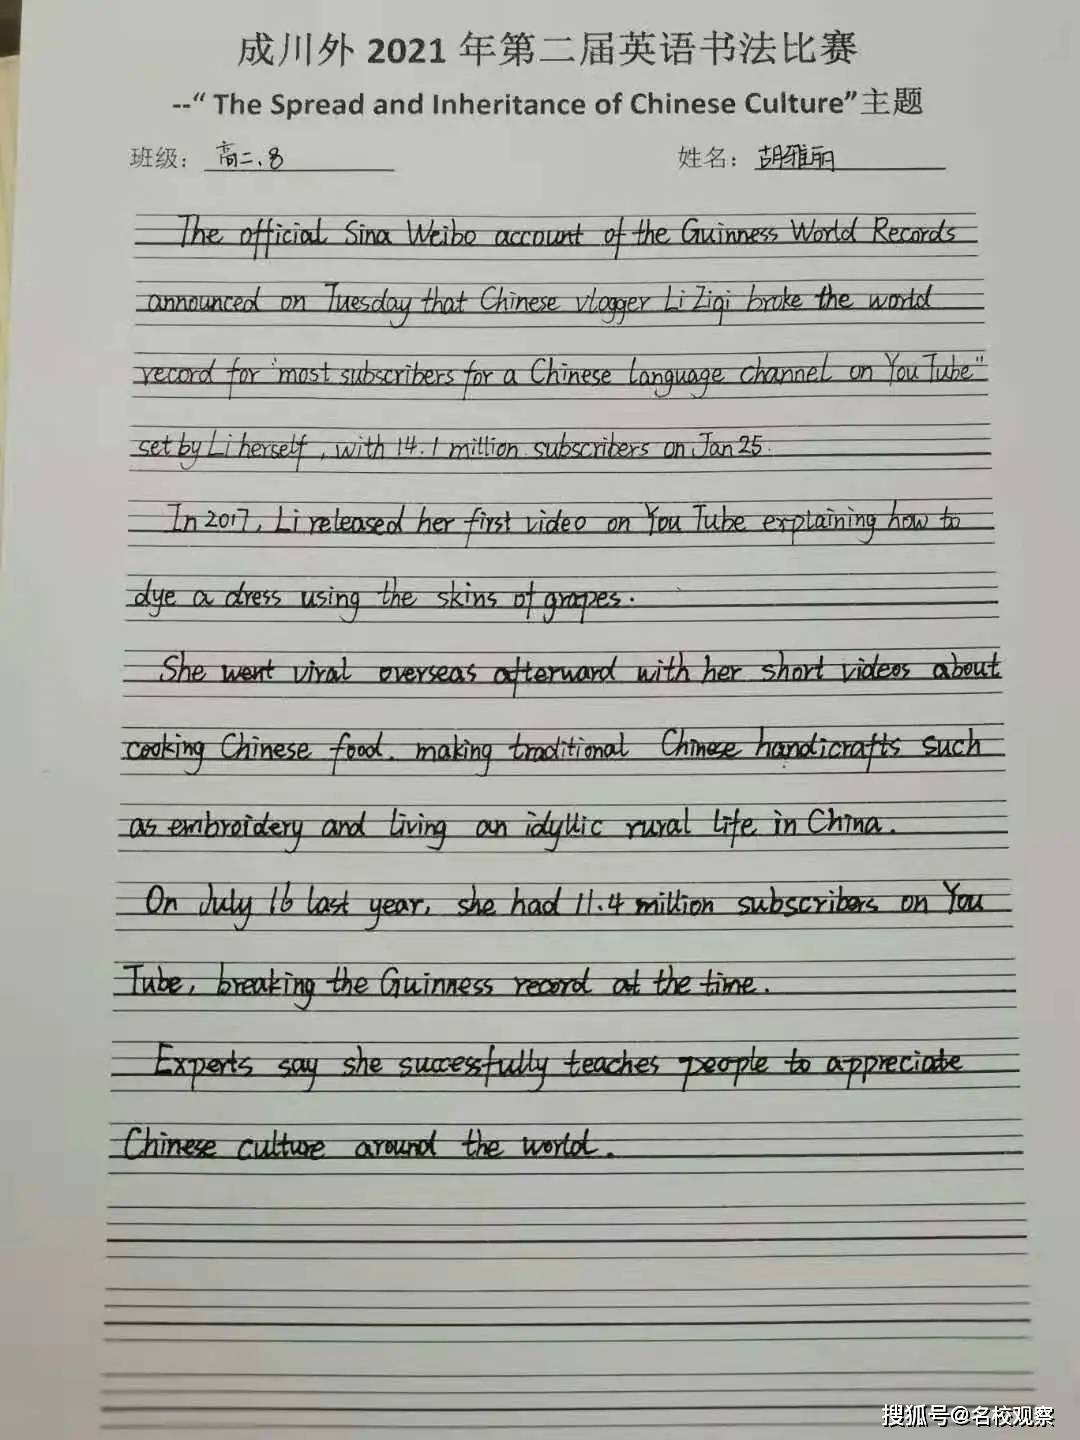 成川外 2021 年第二届英语书法比赛
--“ The Spread and Inheritance of Chinese Culture”主题
班级： 高二.8 姓名： 胡雅丽
The official Sina Weibo account of the Guinness World Records
announced on Tuesday that Chinese vlogger Li Ziqi broke the world
record for "most subscribers for a Chinese language channel on You Tube"
set by Li herself, with 14.1 million subscribers on Jan 25.
In 2017, Li released her first video on You Tube explaining how to
dye a dress using the skins of grapes.
She went viral overseas afterward with her short videos about
cooking Chinese food. making traditional Chinese handicrafts such
as embroidery and living an idyllic rural life in China.
On July 16 last year, she had 11.4 million subscribers on You
Tube, breaking the Guinness record at the time.
Experts say she successfully teaches people to appreciate
Chinese culture around the world.
搜狐号@名校观察